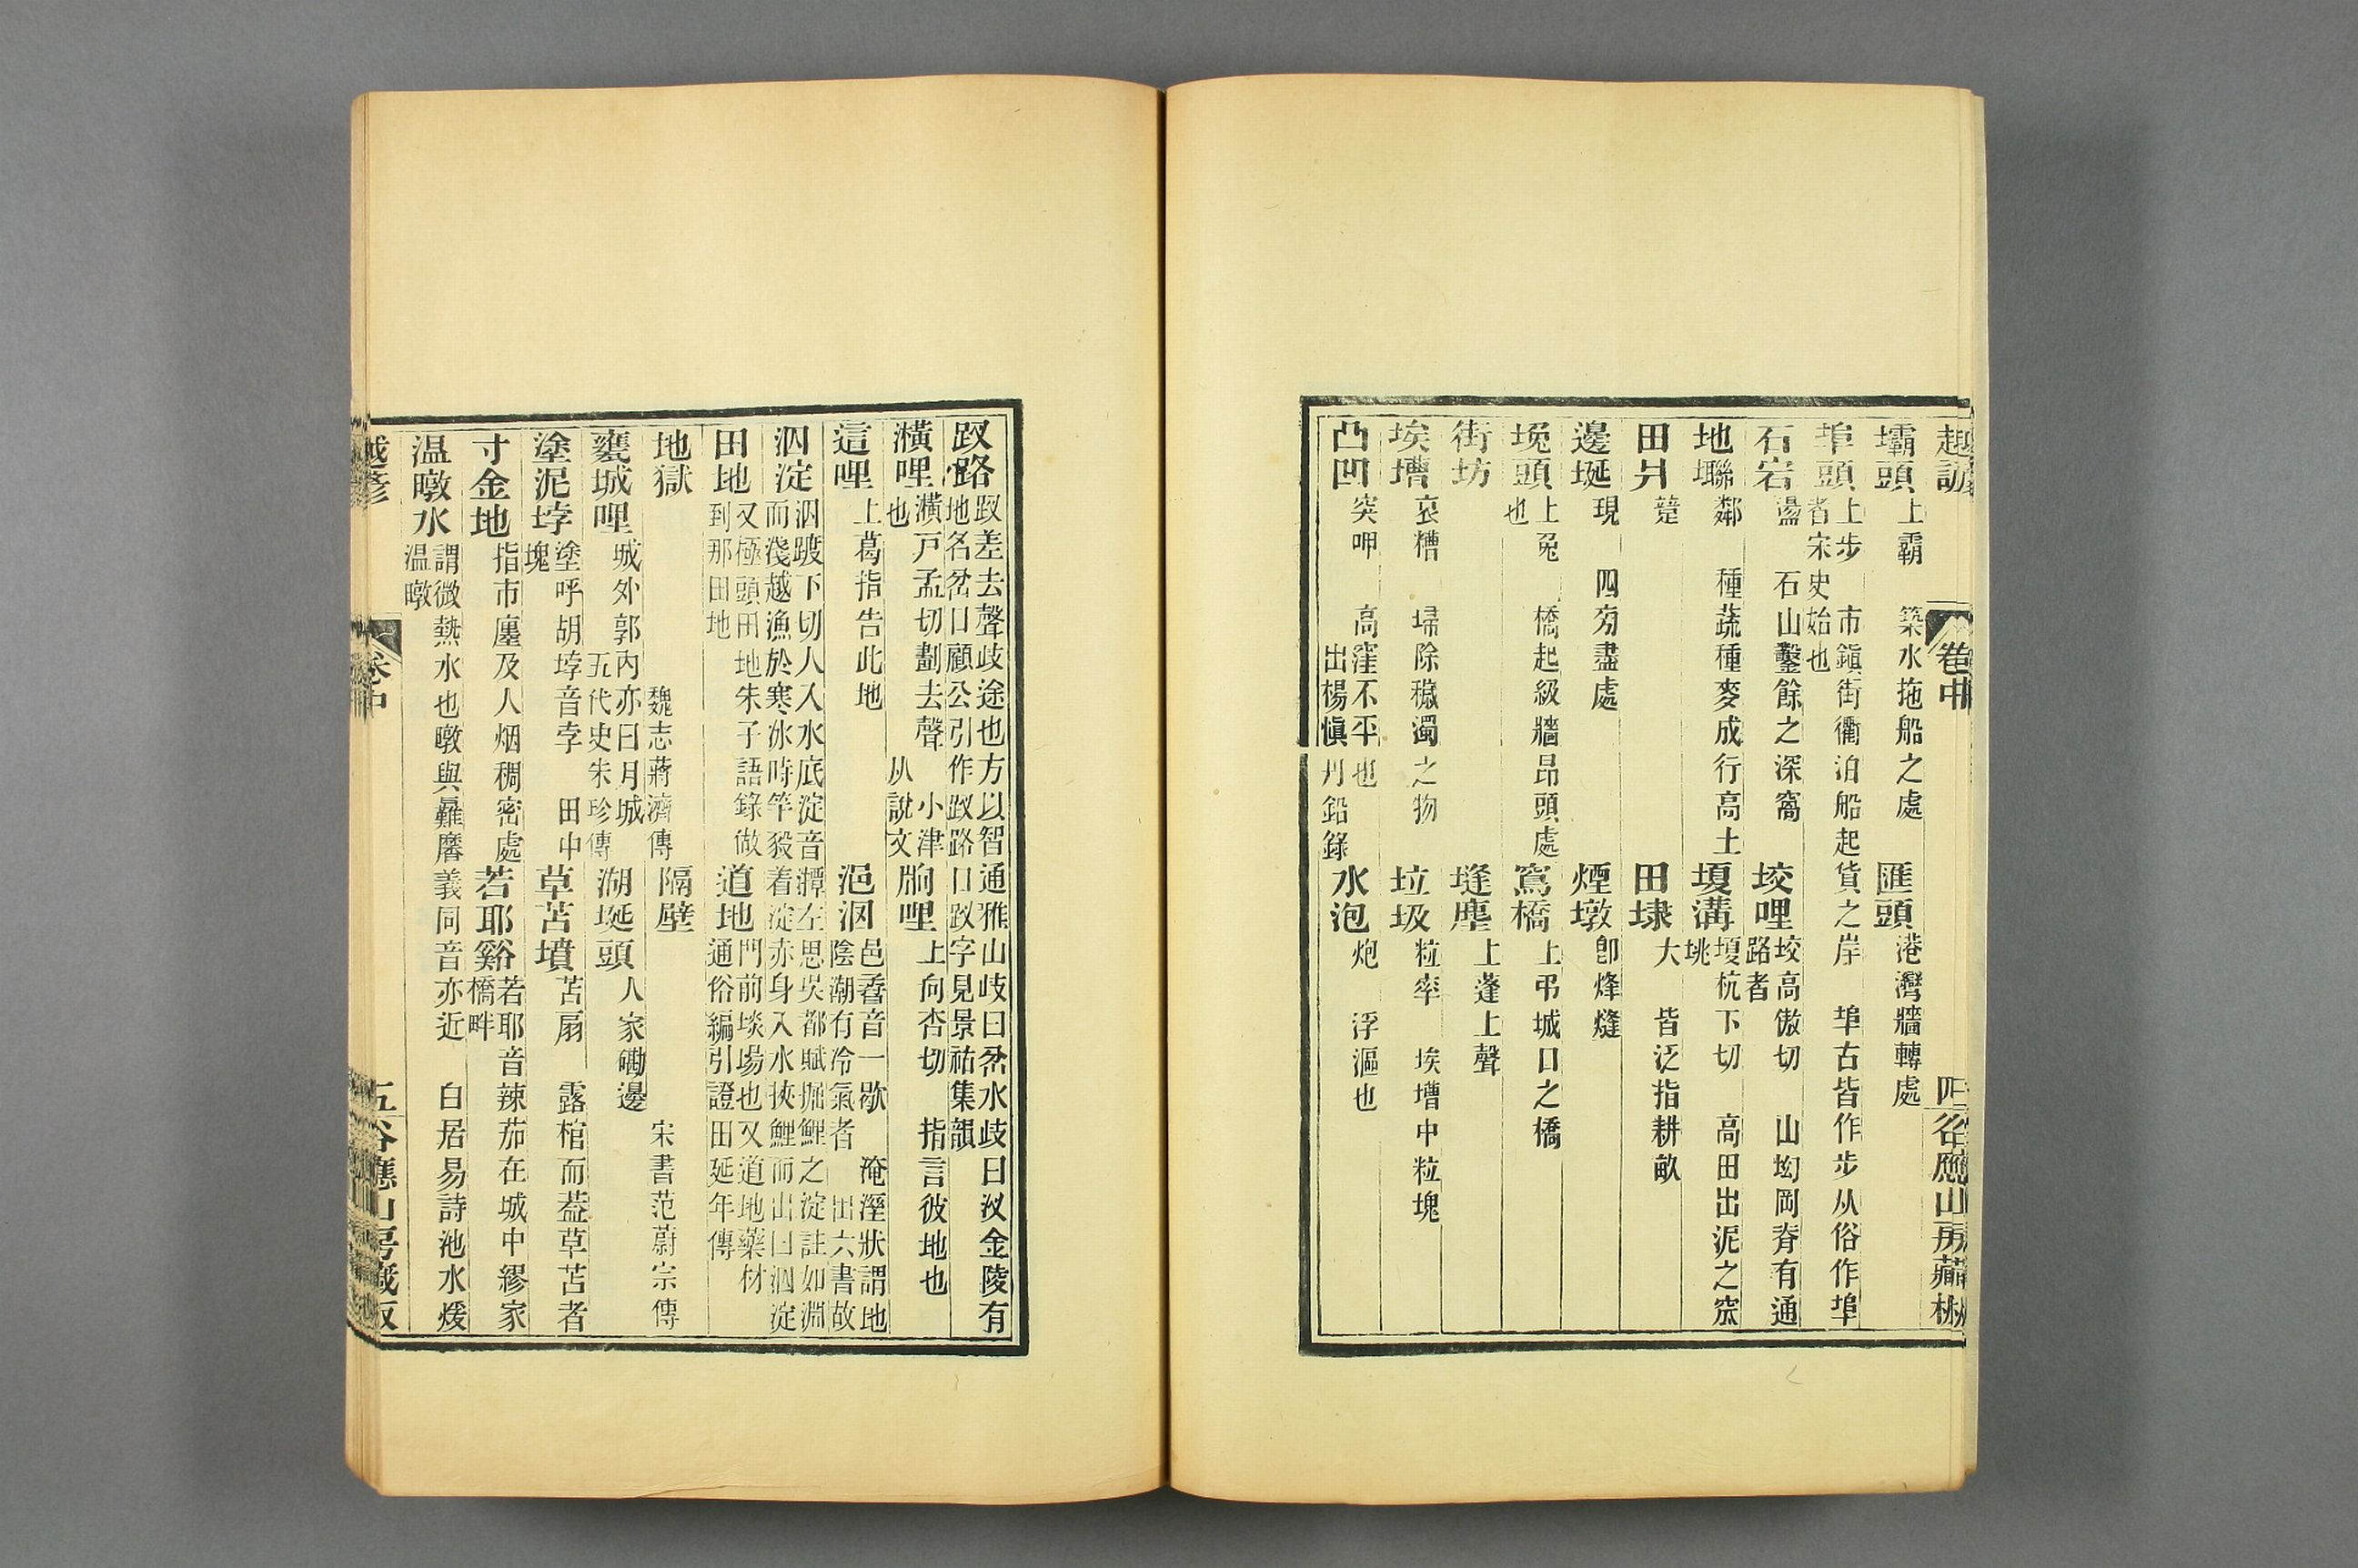 卷中 四 谷應山房藏板
壩頭 上霸 築水拖船之處 匯頭 港灣牆轉處
埠頭 上步 市鎮街衢泊船起貨之岸 埠古皆作步从俗作埠者宋史始也
石宕 盪 石山鑿餘之深窩 垓哩 垓高傲切 山坳岡脊有通路者
地㘓 鄰 種蔬種麥成行高土 堩溝 堩杭下切 高田出泥之窊 垗
田爿 薑 田埭 大 皆泛指耕畝
邊埏 現 四旁盡處 煙墩 卽烽燧
堍頭 上兔 橋起級牆昂頭處也 窵橋 上弔城口之橋
街坊 塳塵 上蓬上聲
埃墭 哀糟 埽除穢濁之物 垃圾 粒率 埃墭中粒塊
凸凹 突呷 高窪不平也 出楊愼丹鉛錄 水泡 炮 浮漚也
䟕路 䟕差去聲歧途也方以智通雅山歧曰岔水歧曰汊金陵有地名岔口顧公引作䟕路口䟕字見景祐集韻
㶇哩 㶇戸孟切劃去聲 小津也 从說文 胻哩 上向杏切 指言彼地也
這哩 上葛指告此地 浥洇 邑㖶音一歇 淹溼狀謂地陰潮有冷氣者 出六書故
泅淀 泅踱下切人入水底淀音潭左思吳都賦掘鯉之淀註如淵而淺越漁於寒冰時竿殺着淀赤身入水挾鯉而出曰泅淀
田地 又極頭田地朱子語錄做到那田地 道地 門前埮場也又道地藥材 通俗編引證田延年傳
地獄 魏志蔣濟傳 隔壁 宋書范蔚宗傳
甕城哩 城外郭內亦曰月城 五代史朱珍傳 湖埏頭 人家磡邊
塗泥垶 塗呼胡垶音孛 田中塊 草苫墳 苫扇 露棺而葢草苫者
寸金地 指市廛及人烟稠密處 若耶谿 若耶音辣茄在城中繆家橋畔
温暾水 謂微熱水也暾與㬮黁義同音亦近 白居易詩池水煖温暾
越諺 卷中 五 谷應山房藏板